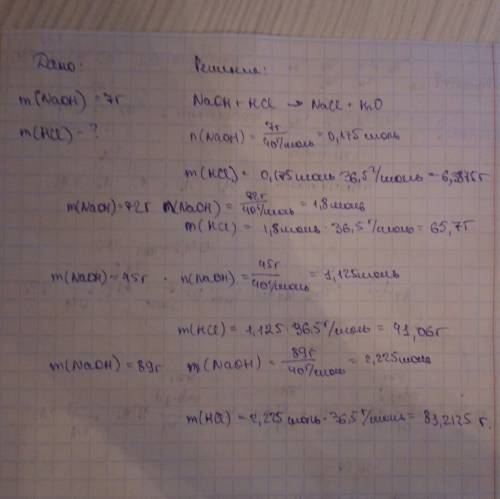 Дано: Решение:
m(NaOH) = 7г NaOH + HCl → NaCl + H₂O
m(HCl) - ? n(NaOH) = 7г / 40г/моль = 0,175 моль
m(HCl) = 0,175 моль · 36,5 г/моль = 6,3875г
m(NaOH) = 72г n(NaOH) = 72г / 40г/моль = 1,8 моль
m(HCl) = 1,8 моль · 36,5 г/моль = 65,7г
m(NaOH) = 45г · n(NaOH) = 45г / 40г/моль = 1,125 моль
m(HCl) = 1,125 · 36,5 г/моль = 41,06г
m(NaOH) = 89г m(NaOH) = 89г / 40г/моль = 2,225 моль
m(HCl) = 2,225 моль · 36,5 г/моль = 81,2125 г.